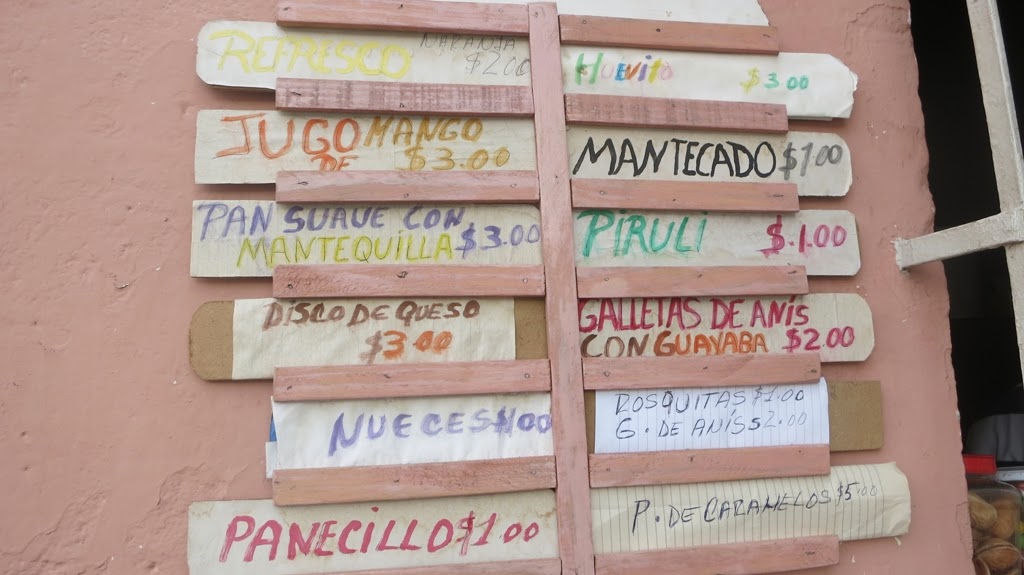 REFRESCO NARANJA
$2.00
JUGO MANGO
DE $3.00
PAN SUAVE CON
MANTEQUILLA $3.00
DISCO DE QUESO
$3.00
NUECES
PANECILLO $1.00
HUEVITO $3.00
MANTECADO $1.00
PIRULI $.1.00
GALLETAS DE ANÍS
CON GUAYABA $2.00
ROSQUITAS $1.00
G. DE ANÍS $2.00
P. DE CARAMELOS $5.00